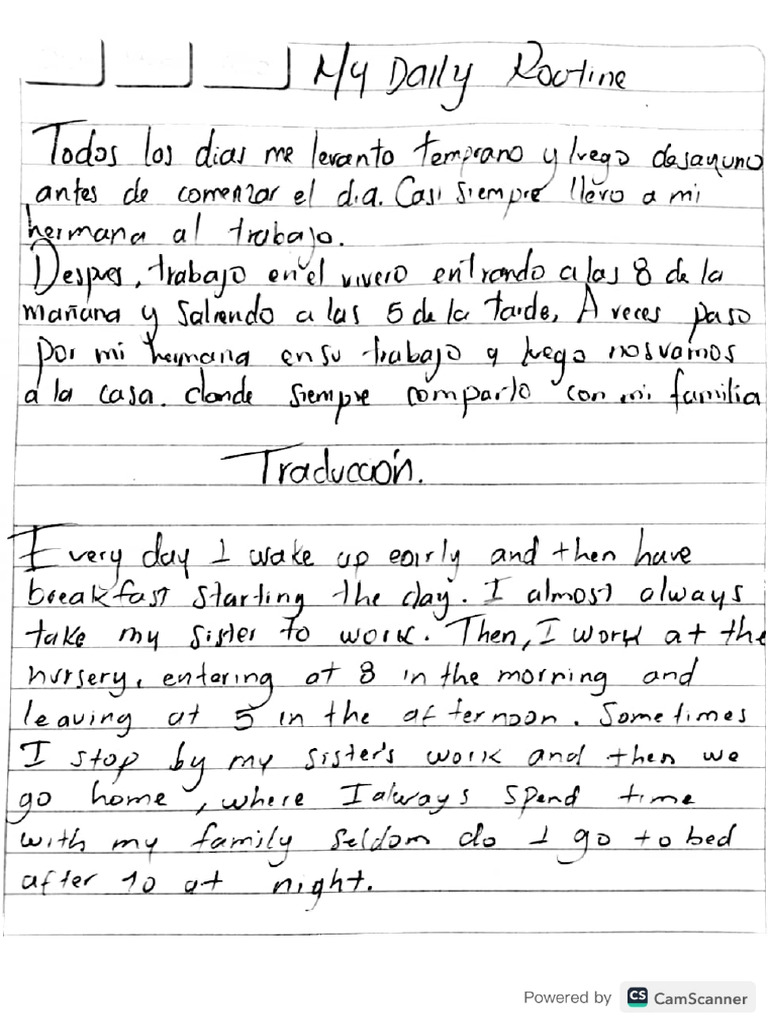 My Daily Routine
Todos los dias me levanto temprano y luego desayuno
antes de comenzar el dia. Casi siempre llevo a mi
hermana al trabajo.
Despues, trabajo en el vivero entrando a las 8 de la
mañana y saliendo a las 5 de la tarde, A veces paso
por mi hermana en su trabajo y luego nos vamos
a la casa. donde siempre comparto con mi familia
Traducción.
Every day I wake up early and then have
breakfast starting the day. I almost always
take my sister to work. Then, I work at the
nursery, entering at 8 in the morning and
leaving at 5 in the afternoon. Sometimes
I stop by my sister's work and then we
go home, where I always spend time
with my family seldom do I go to bed
after 10 at night.
Powered by CS CamScanner